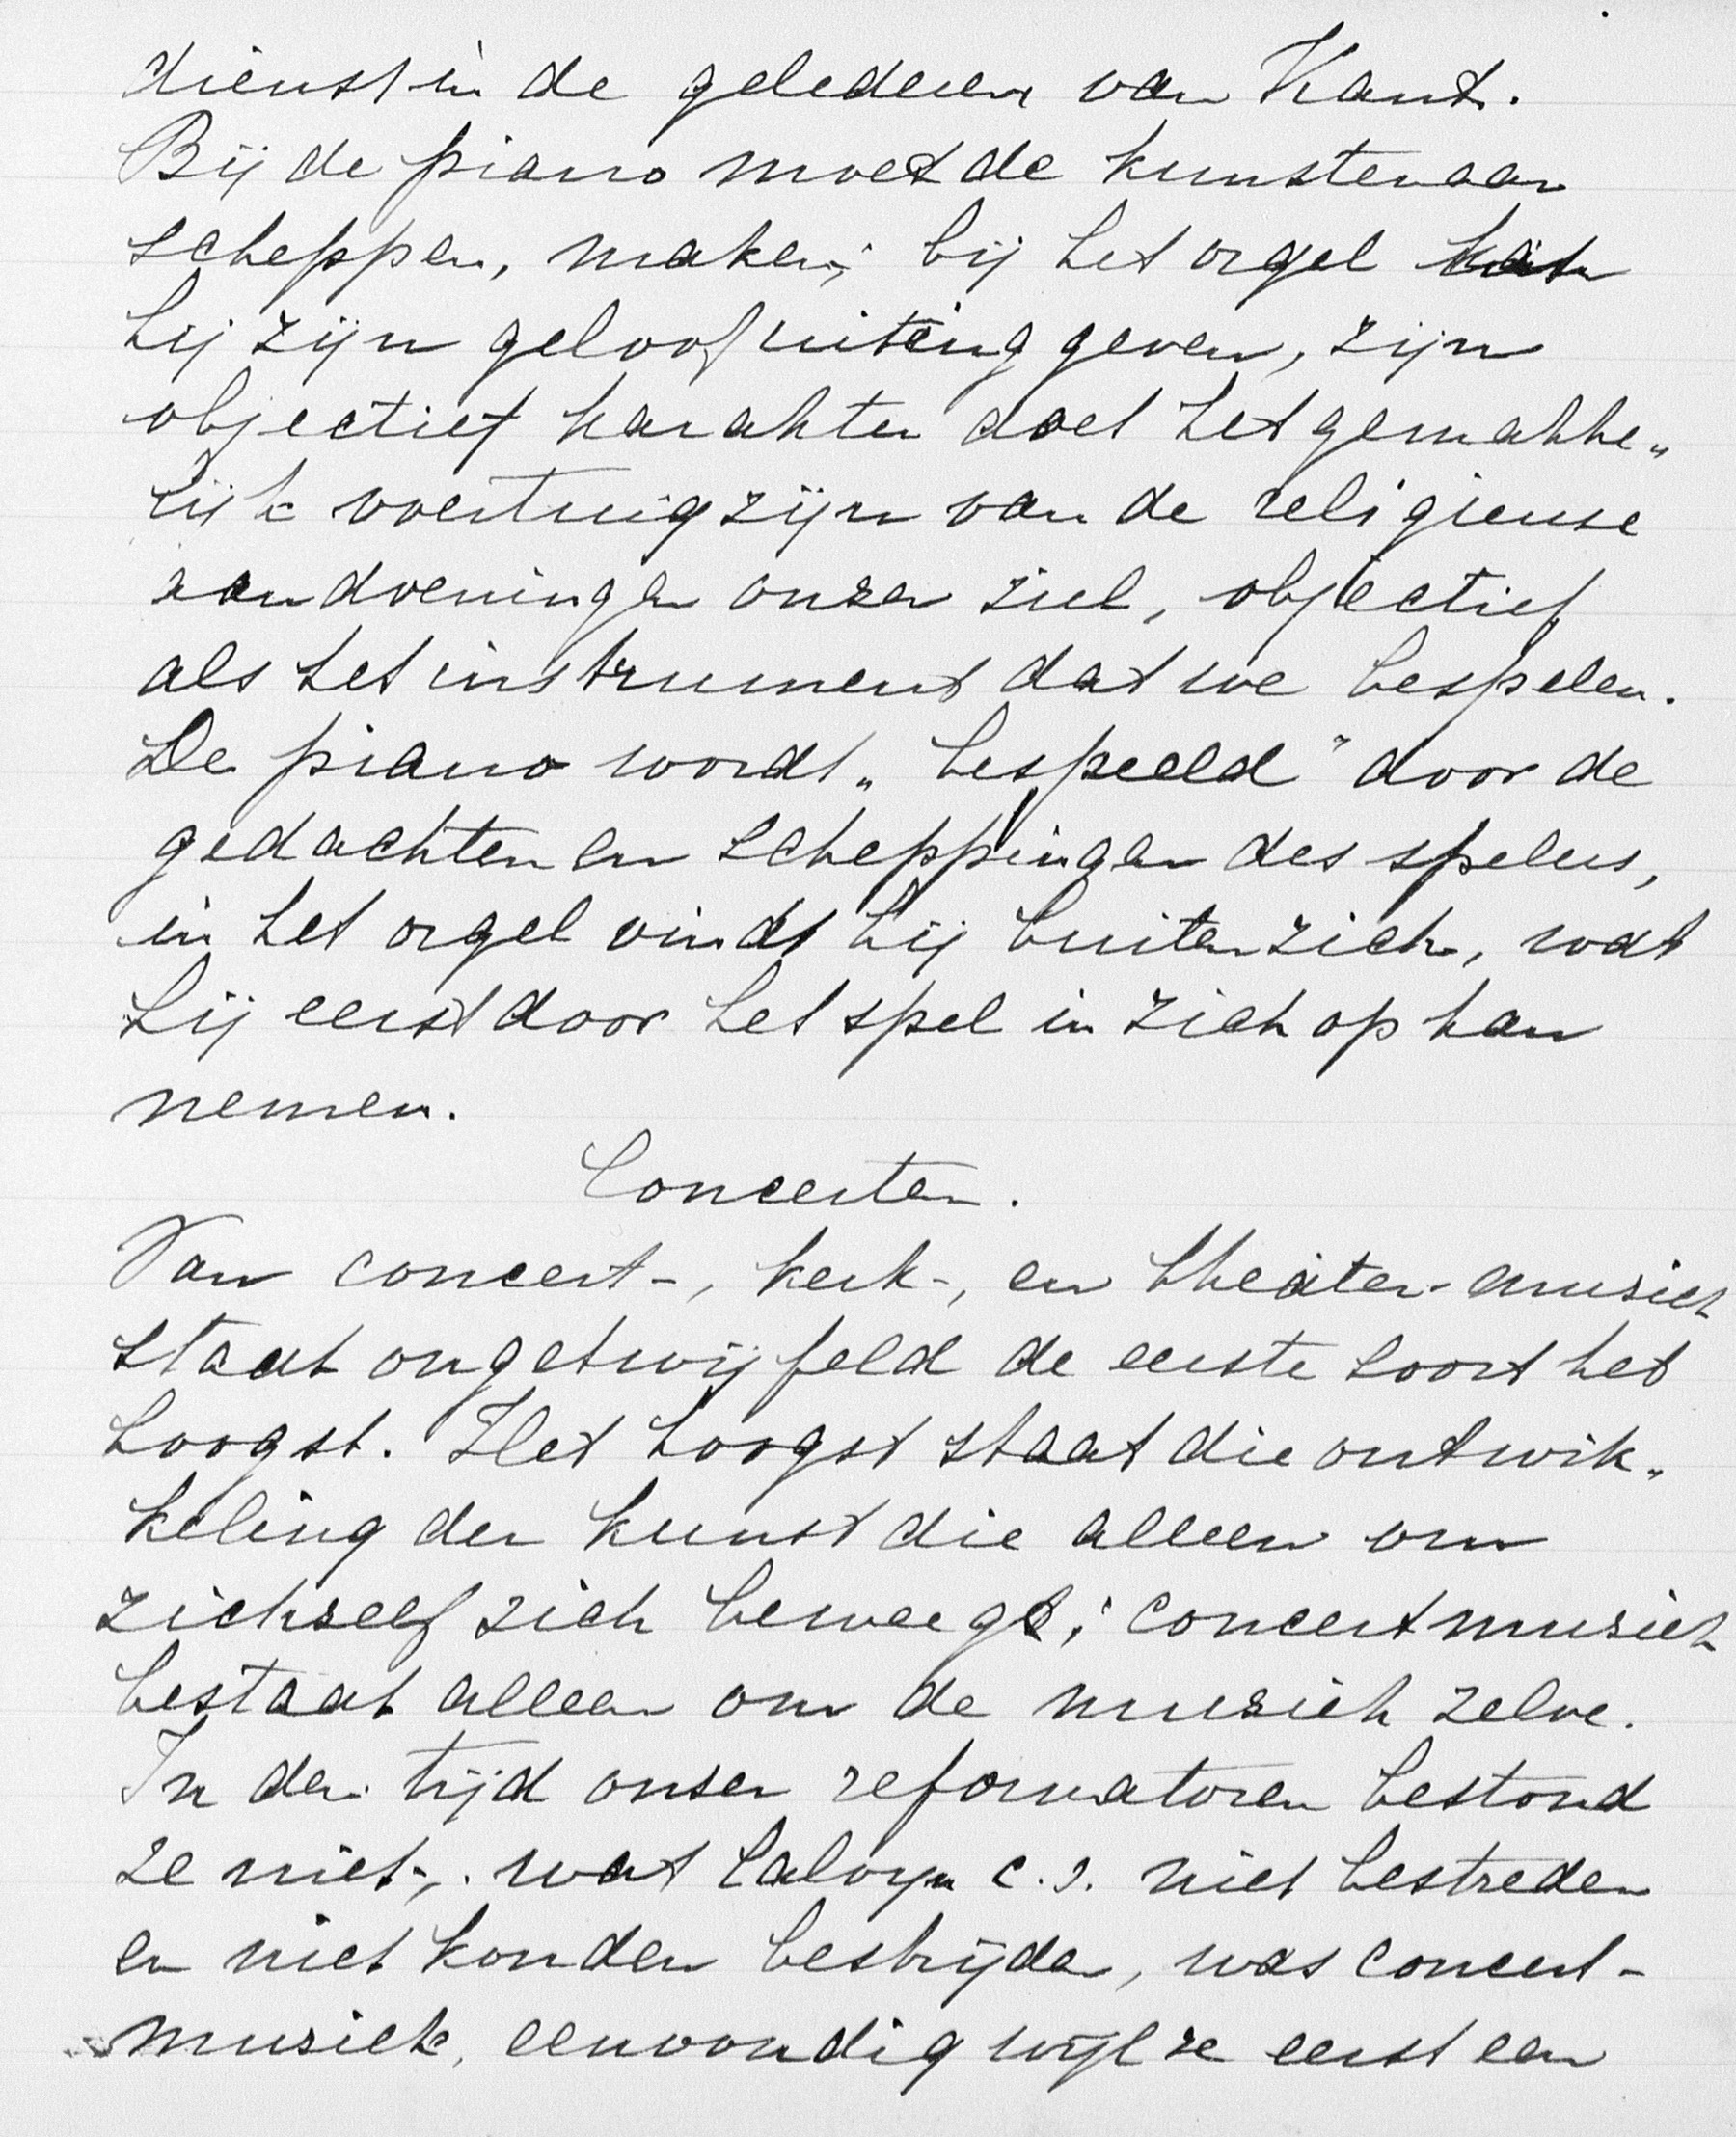 dienst in de gelederen van Kant.
Bij de piano moet de kunstenaar
scheppen, maken; bij het orgel kan
hij zijn geloof uiting geven, zijn
objectief karakter doet het gemakke„
lijk voertuig zijn van de religieuse
aandoeningen onzer ziel, objectief
als het instrument dat we bespelen.
De piano wordt „bespeeld" door de
gedachten en scheppingen des spelers,
in het orgel vindt hij buiten zich, wat
hij eerst door het spel in zich op kan
nemen.
Concerten.
Van concert-, kerk-, en theater-musiek
staat ongetwijfeld de eerste soort het
hoogst. Het hoogst staat die ontwik„
keling der kunst die alleen om
zichzelf zich beweegt; concertmusiek
bestaat alleen om de musiek zelve.
In den tijd onser reformatoren bestond
ze niet; wat Calvyn c.s. niet bestreden
en niet konden bestrijden, was concert-
musiek, eenvoudig wijl ze eerst een